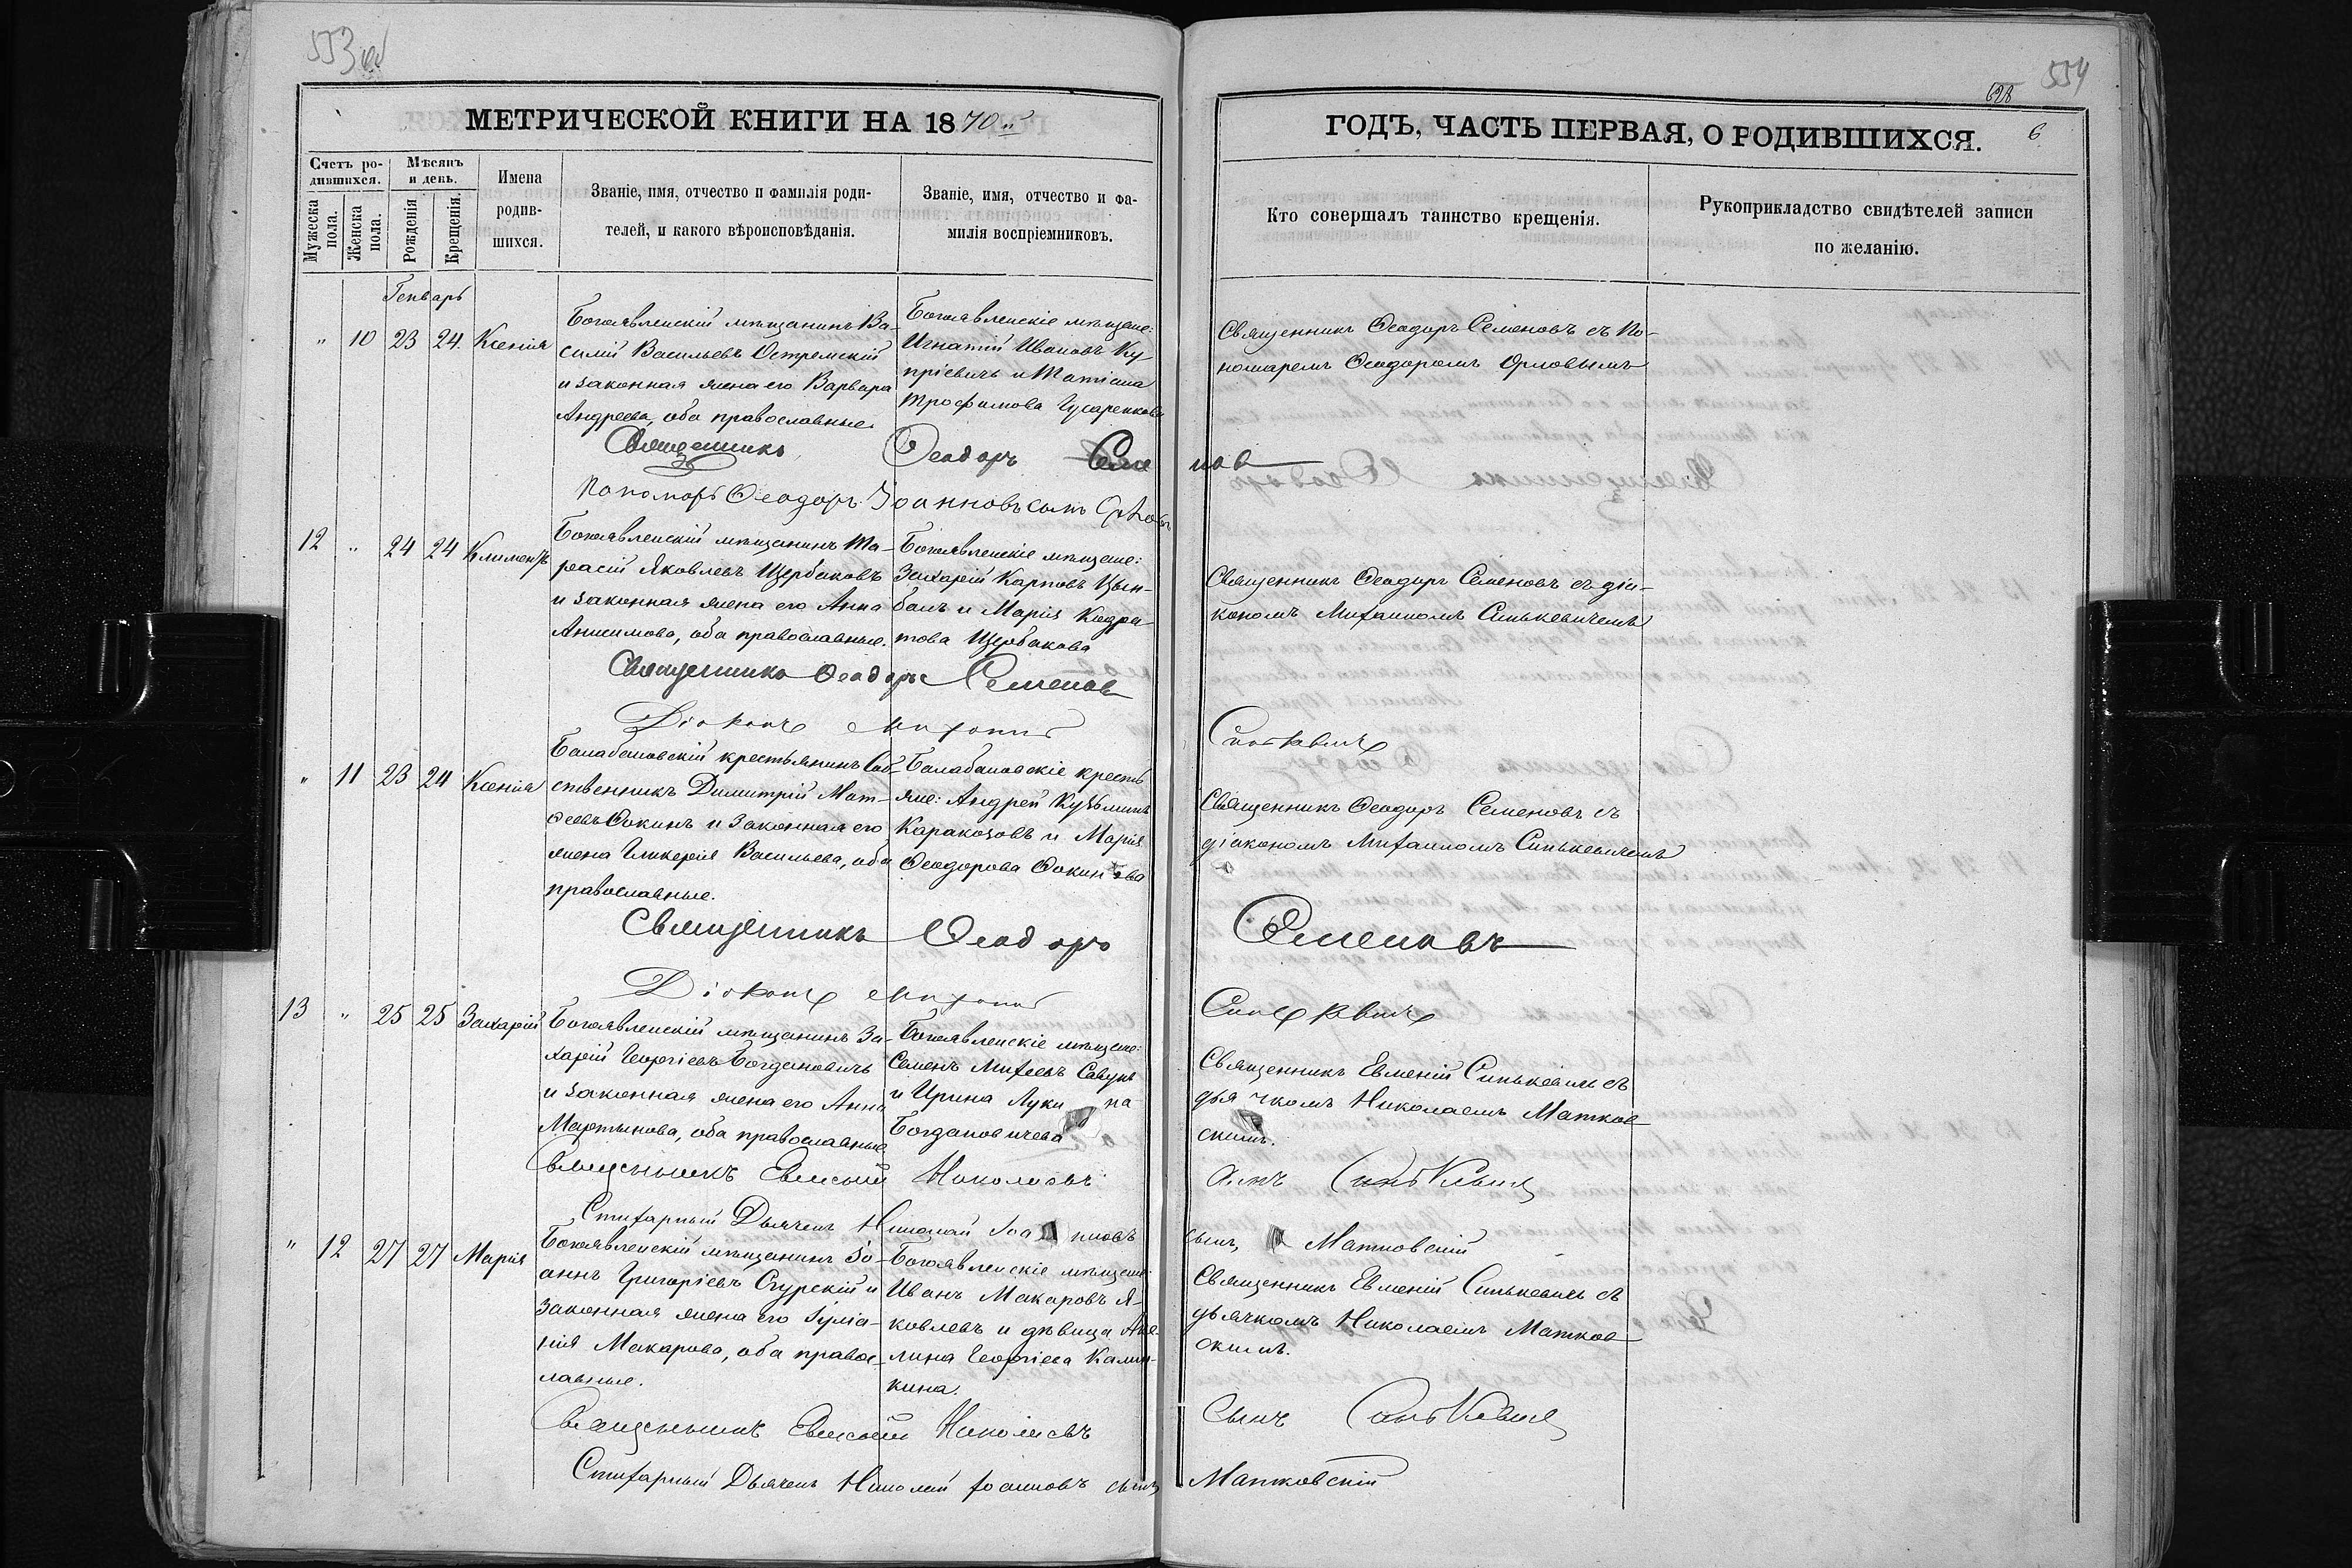 553 об
554
628
6
МЕТРИЧЕСКОЙ КНИГИ НА 1870й
ГОДЪ, ЧАСТЬ ПЕРВАЯ, О РОДИВШИХСЯ.
Счетъ ро-
дившихся.
Мужеска
пола.
Женска
пола.
Мѣсяцъ
и день.
Рожденія
Крещенія.
Имена
родив-
шихся.
Званіе, имя, отчество и фамилія роди-
телей, и какого вѣроисповѣданія.
Званіе, имя, отчество и фа-
милія воспріемниковъ.
Кто совершалъ таинство крещенія.
Рукоприкладство свидѣтелей записи
по желанію.
Генварь
" 10 23 24. Ксенія
Богоявленскій мѣщанинъ Ва-
силій Васильевъ Остремскій
и законная жена его Варвара
Андреева, оба православные.
Богоявленскіе мѣщане:
Игнатій Ивановъ Ку-
пріевичъ и Татіана
Трофимова Гусаренкова
Священникъ Ѳеодоръ Семеновъ съ По-
номаремъ Ѳеодоромъ Орловымъ
Священникъ Ѳеодоръ Семе нов
Пономарь Ѳеодоръ Іоанновъ сынъ Орловъ
12 " 24 24 Климентъ
Богоявленскій мѣщанинъ Та-
расій Яковлевъ Щербаковъ
и законная жена его Анна
Анисимова, оба православные.
Богоявленскіе мѣщане:
Захарій Карповъ Цым-
балъ и Марія Кодра-
това Щербакова
Священникъ Ѳеодоръ Семеновъ съ діа-
кономъ Михаиломъ Синькевичемъ
Священникъ Ѳеодоръ Семенов
Діаконъ Михаилъ Синькевичъ
" 11 23 24 Ксенія
Балабановскій крестьянинъ Соб-
ственникъ Димитрій Мат-
ѳеевъ Ѳокинъ и законная его
жена Гликерія Васильева, оба
православные.
Балабановскіе кресть
яне: Андрей Кузьминъ
Каракозовъ и Марія
Ѳеодорова Ѳокинова
Священникъ Ѳеодоръ Семеновъ съ
діакономъ Михаиломъ Синькевичемъ
Священникъ Ѳеодоръ Семеновъ
Діаконъ Михаилъ Синькевичъ
13 " 25 25 Захарій
Богоявленскій мѣщанинъ За-
харій Георгіевъ Богдановичъ
и законная жена его Анна
Мартынова, оба православные
Богоявленскіе мѣщане:
Семенъ Михеевъ Савукъ
и Ирина Луки на
Богдановичева
Священникъ Евменій Синькевичъ съ
дья чкомъ Николаемъ Матков-
скимъ.
Священникъ Евменій Николаевъ сынъ Синькевичъ
Стихарный Дьячекъ Николай Іоа нновъ сынъ, Матковскій
" 12 27 27 Марія
Богоявленскій мѣщанинъ Іо-
аннъ Григоріевъ Сгурскій и
законная жена его Іуліа-
нія Макарова, оба правос-
лавные.
Богоявленскіе мѣщане:
Иванъ Макаровъ Я-
ковлевъ и дѣвица Аке-
лина Георгіева Калин-
кина.
Священникъ Евменій Синькевичъ съ
дьячкомъ Николаемъ Матков-
скимъ.
Священникъ Евменій Николаевъ сынъ Синькевичъ
Стихарный Дьячекъ Николай Іоанновъ сынъ Матковскій